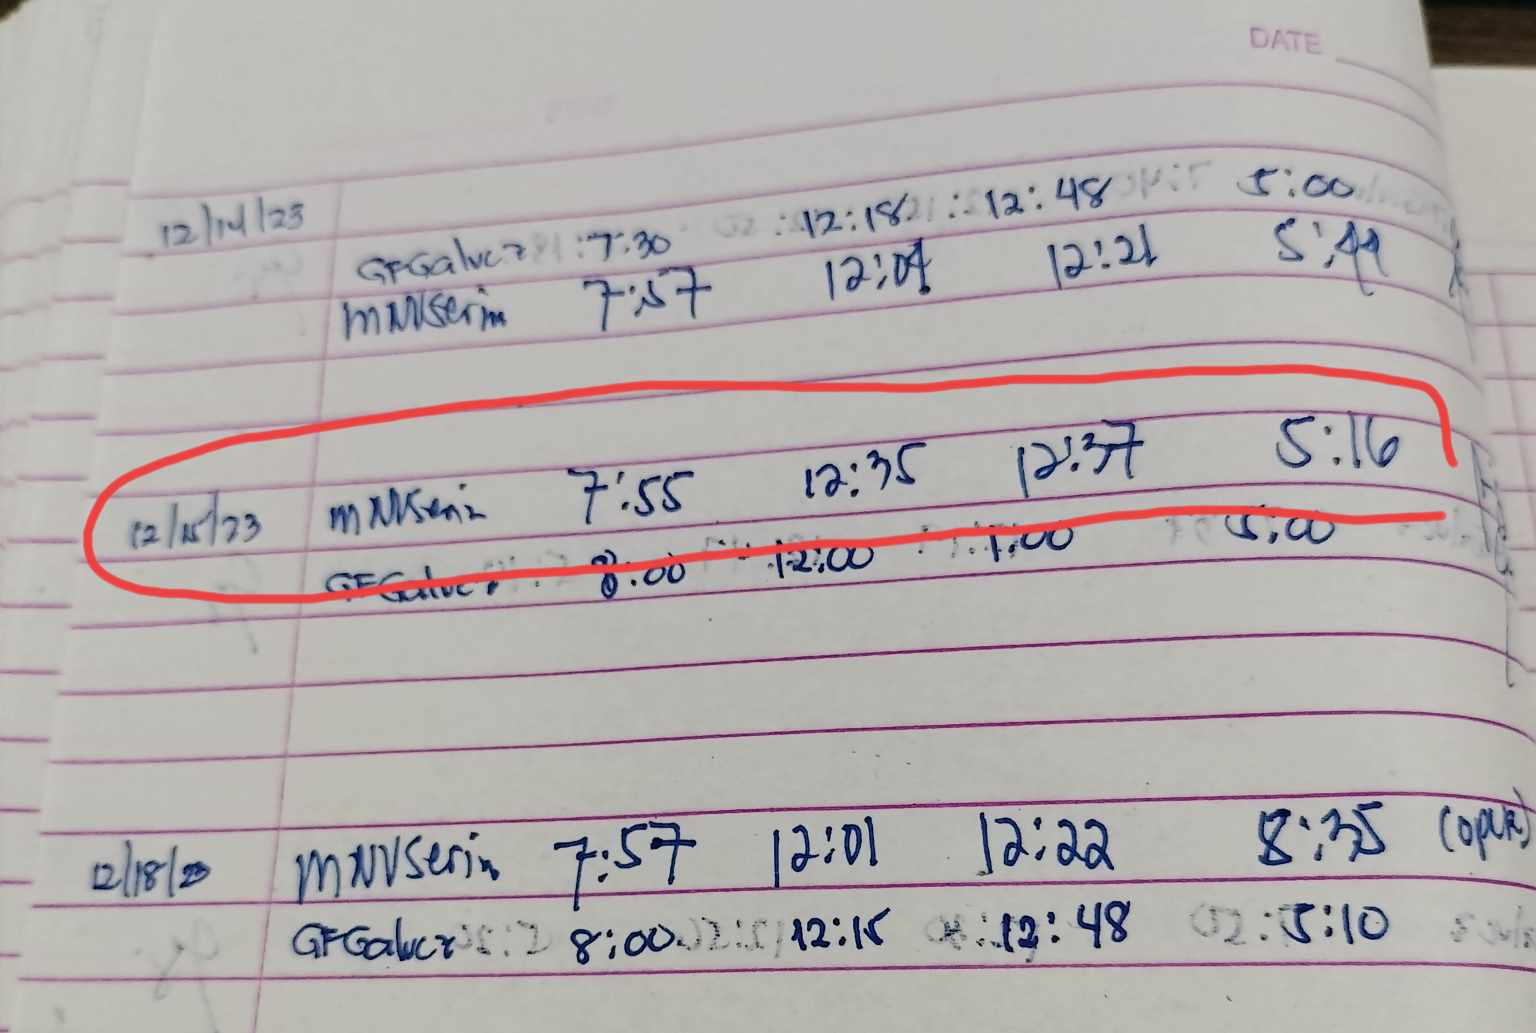 DATE
12/14/23
GFGalvez 7:30 12:18 12:48 5:00
MNVSerin 7:57 12:04 12:21 5:44
12/15/23 MNVSerin 7:55 12:35 12:37 5:16
GFGalvez 8:00 12:00 1:00 5:00
12/18/23 MNVSerin 7:57 12:01 12:22 8:35
GFGalvez 8:00 12:15 12:48 5:10